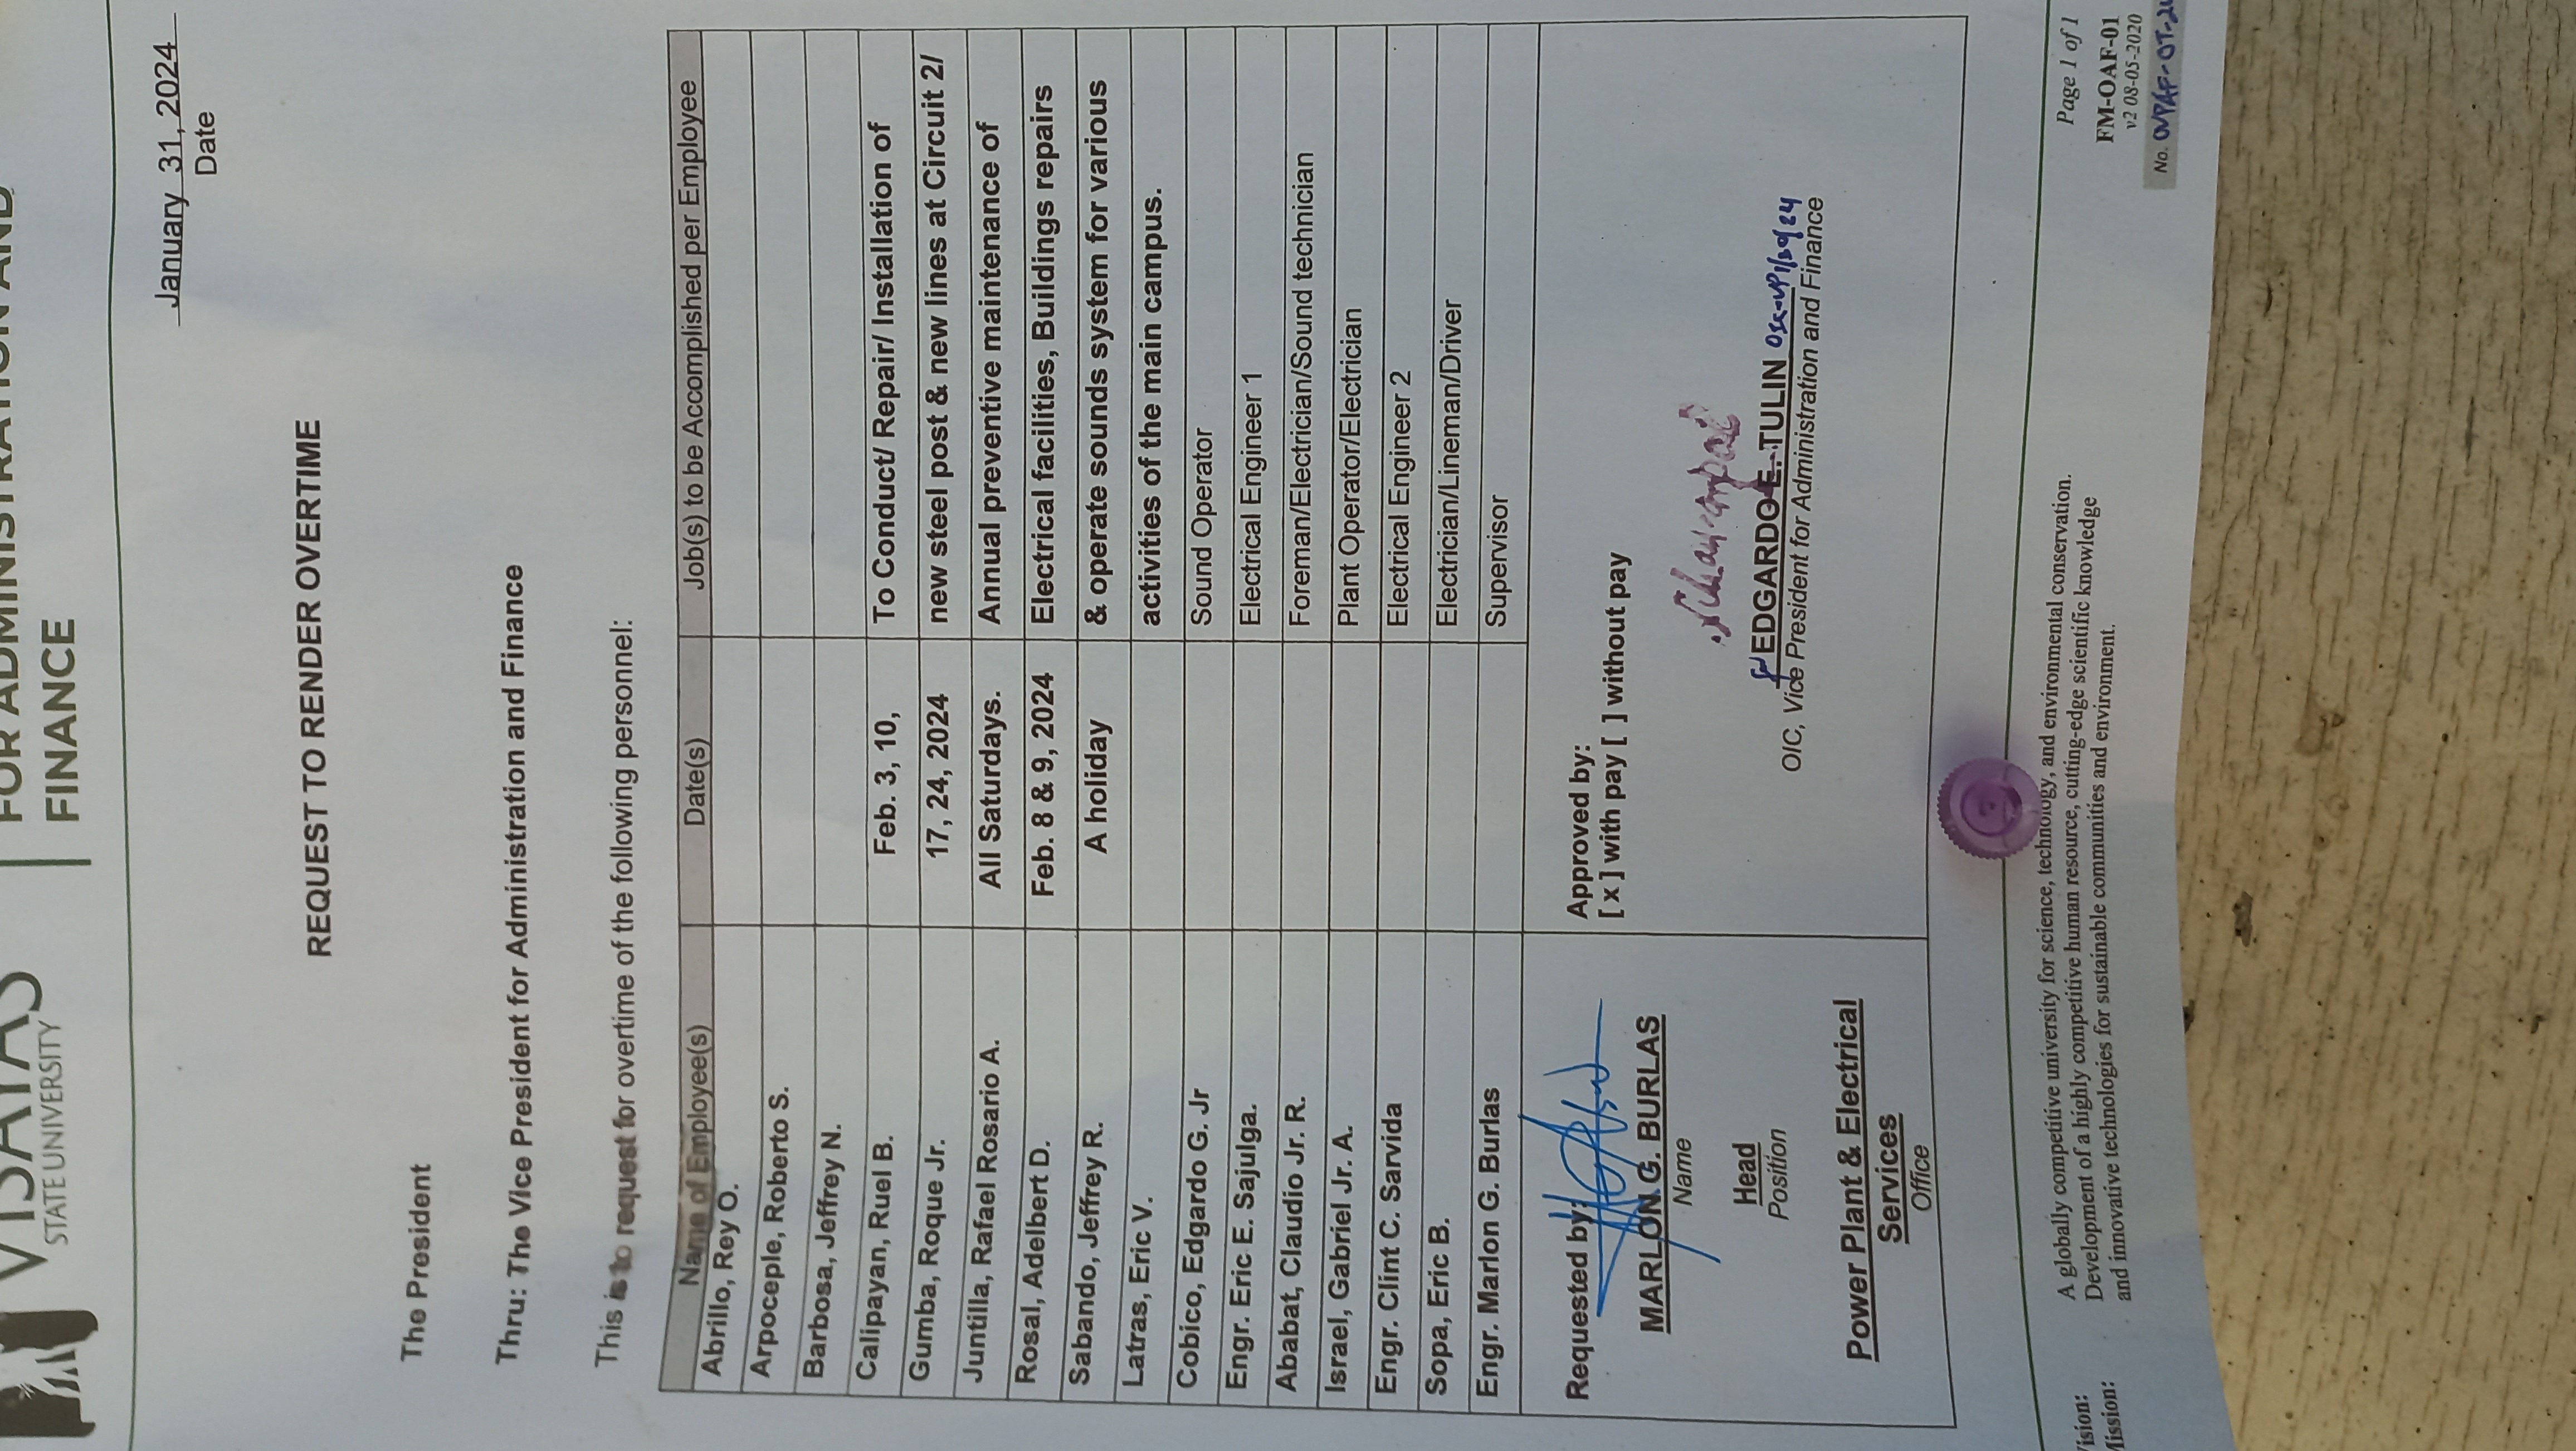 VISAYAS
STATE UNIVERSITY
FOR ADMINISTRATION AND
FINANCE
January 31, 2024
Date
REQUEST TO RENDER OVERTIME
The President
Thru: The Vice President for Administration and Finance
This is to request for overtime of the following personnel:
Name of Employee(s) Date(s) Job(s) to be Accomplished per Employee
Abrillo, Rey O.
Arpoceple, Roberto S.
Barbosa, Jeffrey N.
Calipayan, Ruel B. Feb. 3, 10, To Conduct/ Repair/ Installation of
Gumba, Roque Jr. 17, 24, 2024 new steel post & new lines at Circuit 2/
Juntilla, Rafael Rosario A. All Saturdays. Annual preventive maintenance of
Rosal, Adelbert D. Feb. 8 & 9, 2024 Electrical facilities, Buildings repairs
Sabando, Jeffrey R. A holiday & operate sounds system for various
Latras, Eric V. activities of the main campus.
Cobico, Edgardo G. Jr Sound Operator
Engr. Eric E. Sajulga. Electrical Engineer 1
Ababat, Claudio Jr. R. Foreman/Electrician/Sound technician
Israel, Gabriel Jr. A. Plant Operator/Electrician
Engr. Clint C. Sarvida Electrical Engineer 2
Sopa, Eric B. Electrician/Lineman/Driver
Engr. Marlon G. Burlas Supervisor
Requested by:
MARLON G. BURLAS
Name
Head
Position
Power Plant & Electrical
Services
Office
Approved by:
[ x ] with pay [ ] without pay
EDGARDO E. TULIN
OIC, Vice President for Administration and Finance
Vision: A globally competitive university for science, technology, and environmental conservation.
Mission: Development of a highly competitive human resource, cutting-edge scientific knowledge
and innovative technologies for sustainable communities and environment.
Page 1 of 1
FM-OAF-01
v2 08-05-2020
No. OVPAF-OT-